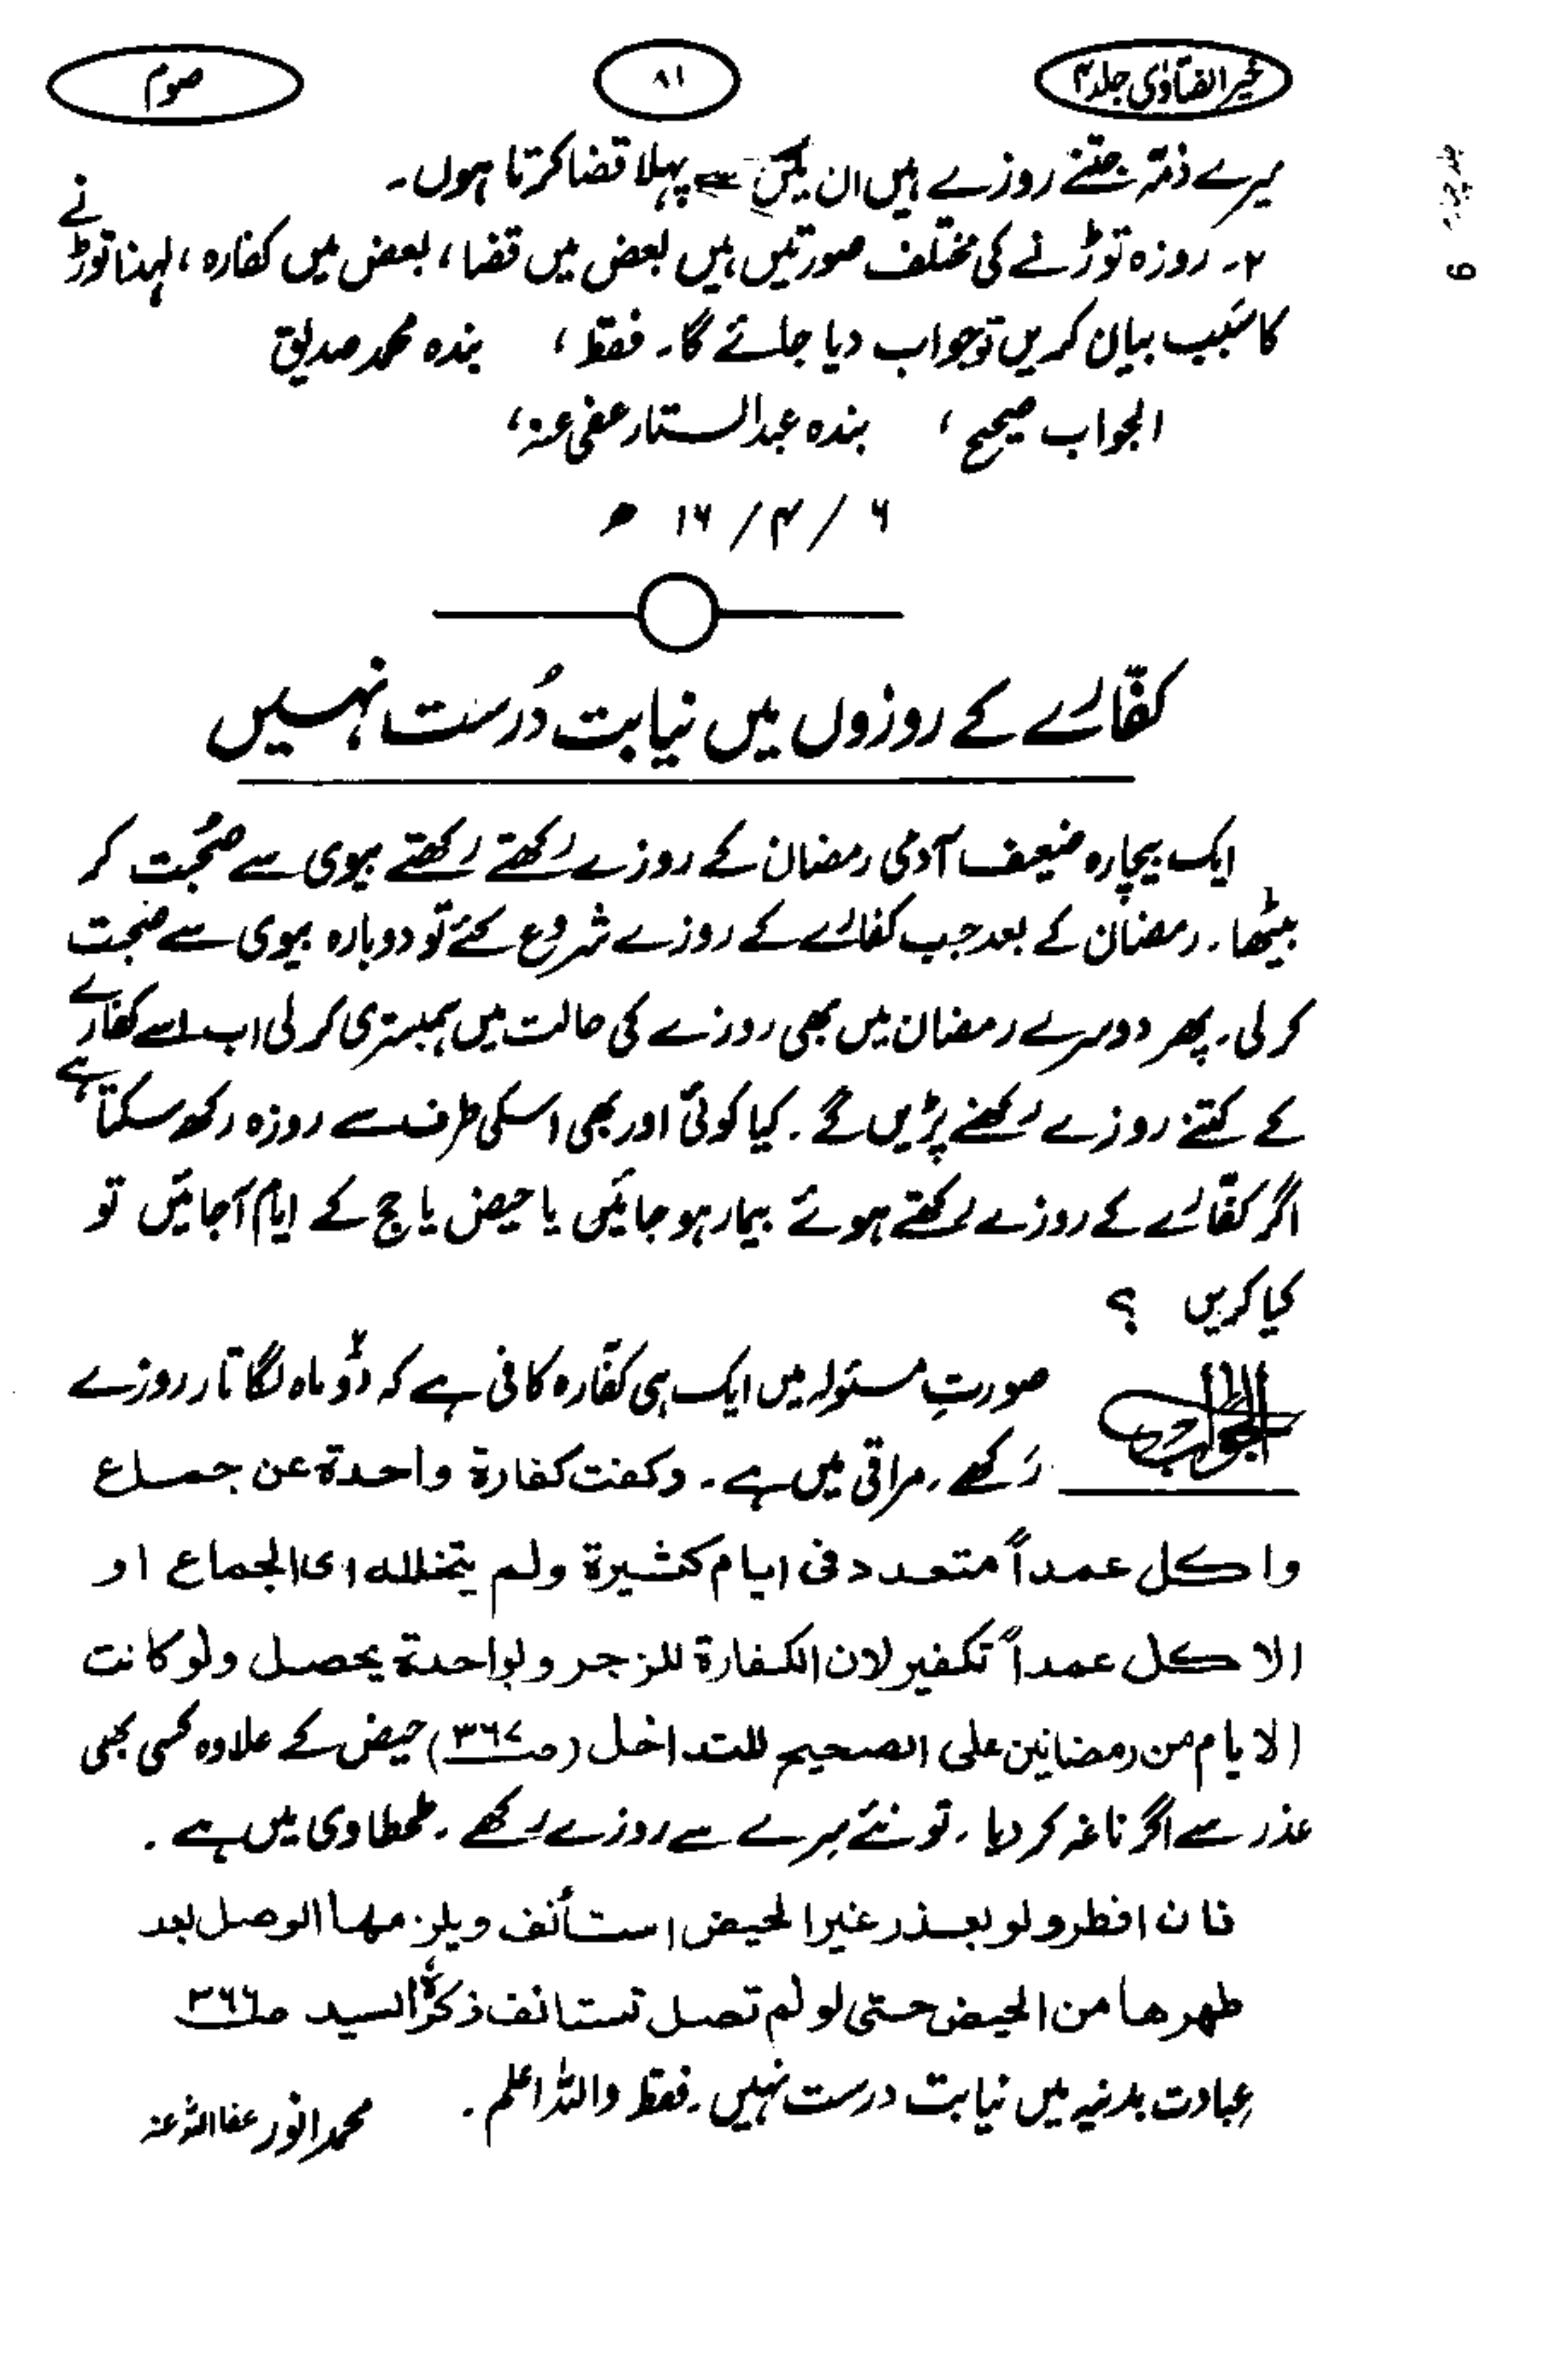 خیر الفتاوٰی جلد ۴
۸۱
صوم
میرے ذمّہ جتنے روزے ہیں ان میں سے پہلا قضا کرتا ہوں۔
۲۔ روزہ توڑنے کی مختلف صورتیں ہیں بعض میں قضا، بعض میں کفارہ، لہٰذا توڑنے
کا سَبب بیان کریں تو جواب دیا جائے گا۔ فقط، بندہ محمد صدیق
الجواب صحیح، بندہ عبدالستار عفی عنہ،
۶ / ۴ / ۱۶ ھ
کفّارے کے روزوں میں نیابت دُرست نہیں
ایک بیچارہ ضعیف آدمی رمضان کے روزے رکھتے رکھتے بیوی سے صُحبت کر
بیٹھا۔ رمضان کے بعد جب کفارے کے روزے شروع کئے تو دوبارہ بیوی سے صحبت
کر لی۔ پھر دوسرے رمضان میں بھی روزے کی حالت میں ہمبستری کر لی اب اسے کفارے
کے کتنے روزے رکھنے پڑیں گے۔ کیا کوئی اور بھی اسکی طرف سے روزہ رکھ سکتا ہے
اگر کفّارے کے روزے رکھتے ہوئے بیمار ہو جائیں یا حیض یا حج کے ایام آجائیں تو
کیا کریں ؟
الجواب
صورتِ مسئولہ میں ایک ہی کفّارہ کافی ہے کہ دُو ماہ لگاتار روزے
رَکھے۔ مراقی میں ہے۔ وکفت کفارة واحدة عن جماع
واکل عمداً متعدد فی ایام کثیرة ولم یتخللہ ای الجماع او
الاکل عمداً تکفیر لان الکفارة للزجر وبواحدة یحصل ولو کانت
الایام من رمضانین علی الصحیح للتداخل (ص۳۶۷) حیض کے علاوہ کسی بھی
عذر سے اگر ناغہ کر دیا۔ تو نئے سِرے سے روزے رکھے۔ طحطاوی میں ہے۔
فان افطر ولو بعذر غیر الحیض استأنف ویلزمها الوصل بعد
طهرها من الحیض حتی لو لم تصل تستانف ذکرہُ السید ص۳۶۶
عِبادت بدنیہ میں نیابت درست نہیں۔ فقط واللہ اعلم۔
محمد انور عفا اللہ عنہ
6